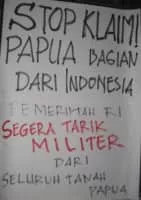 STOP KLAIM!
PAPUA BAGIAN
DARI INDONESIA
PEMERINTAH RI
SEGERA TARIK
MILITER
DARI
SELURUH TANAH
PAPUA